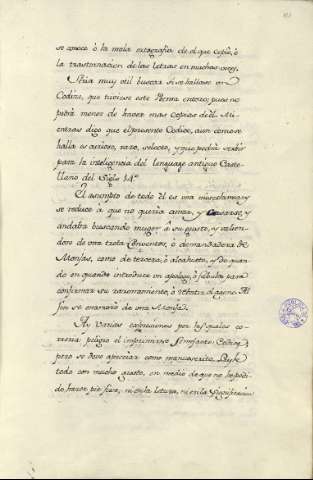 se conoce ò la mala ortografia de el que copió, ò
la trastornacion de las letras en muchas voces.
Seria muy util buscar si se hallase un
Codice, que tuviese este Poema entero; pues no
podrá menos de haver mas copias de él. Mi-
entras digo que el presente Codice, aun como se
halla es curioso, raro, selecto, y que podrá servir
para la inteligencia del lenguage antiguo Caste-
llano del Siglo 14º
El asumpto de todo él es una mescolanza y
se reduce à que no queria amar, y casarse, y
andaba buscando muger à su gusto, y valien-
dose de una trota Conventos, ò demandadera de
Monjas, como de tercera, ò alcahueta, y de quan-
do en quando introduce un apologo, ò fabula para
confirmar su razonamiento, ò retraer al ageno. Al
fin se enamorò de una Monja.
Ay varias expresiones por las quales co-
rreria peligro el imprimirse semejante Codice;
pero se debe apreciar como manuscrito. Leyle
todo con mucho gusto, en medio de que no he podi-
do hacer pie fixo, ni en la letura, ni en la